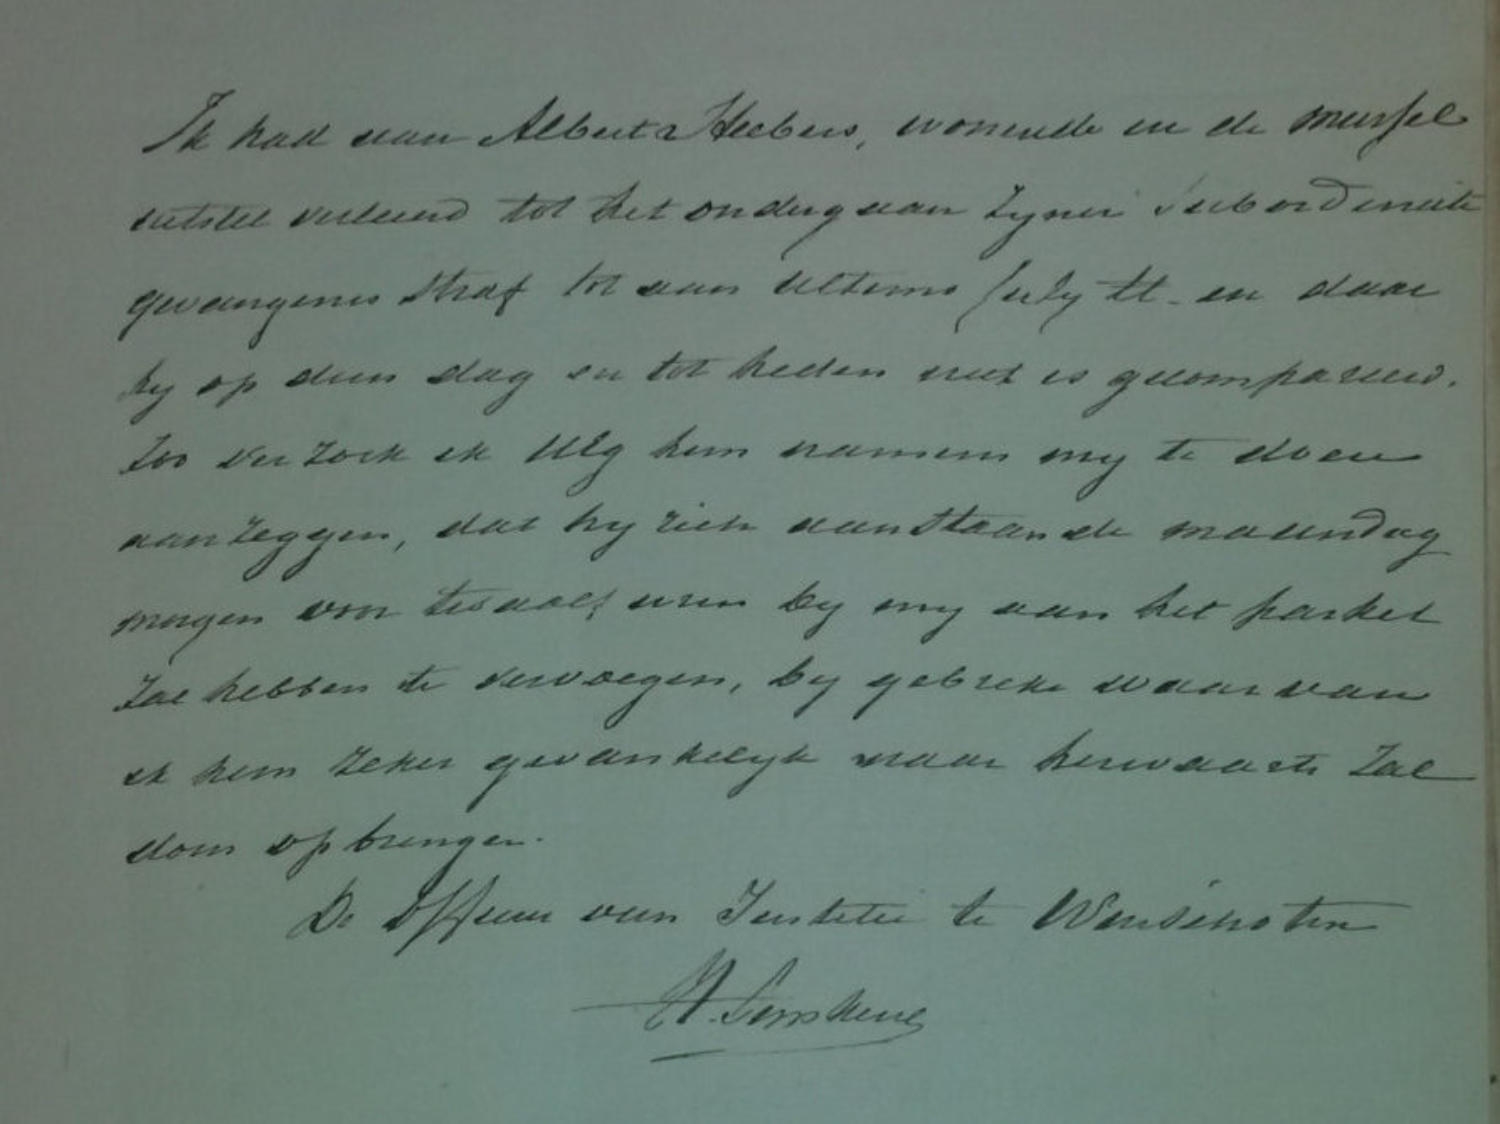 Ik had aan Albert Heebers, wonende in de mussel
uitstel verleend tot het ondergaan zyner
gevangenis straf tot aan ultimo July ll. en daar
hy op dien dag en tot heden niet is gecompareerd.
Zoo verzoek ik UEg hem namens my te doen
aanzeggen, dat hy zich aanstaande maandag
morgen voor twaalf uren by my aan het parket
zal hebben te vervoegen, by gebreke waarvan
ik hem zeker gevankelyk naar herwaarts zal
doen opbrengen.
De Officier van Justitie te Winschoten
H.